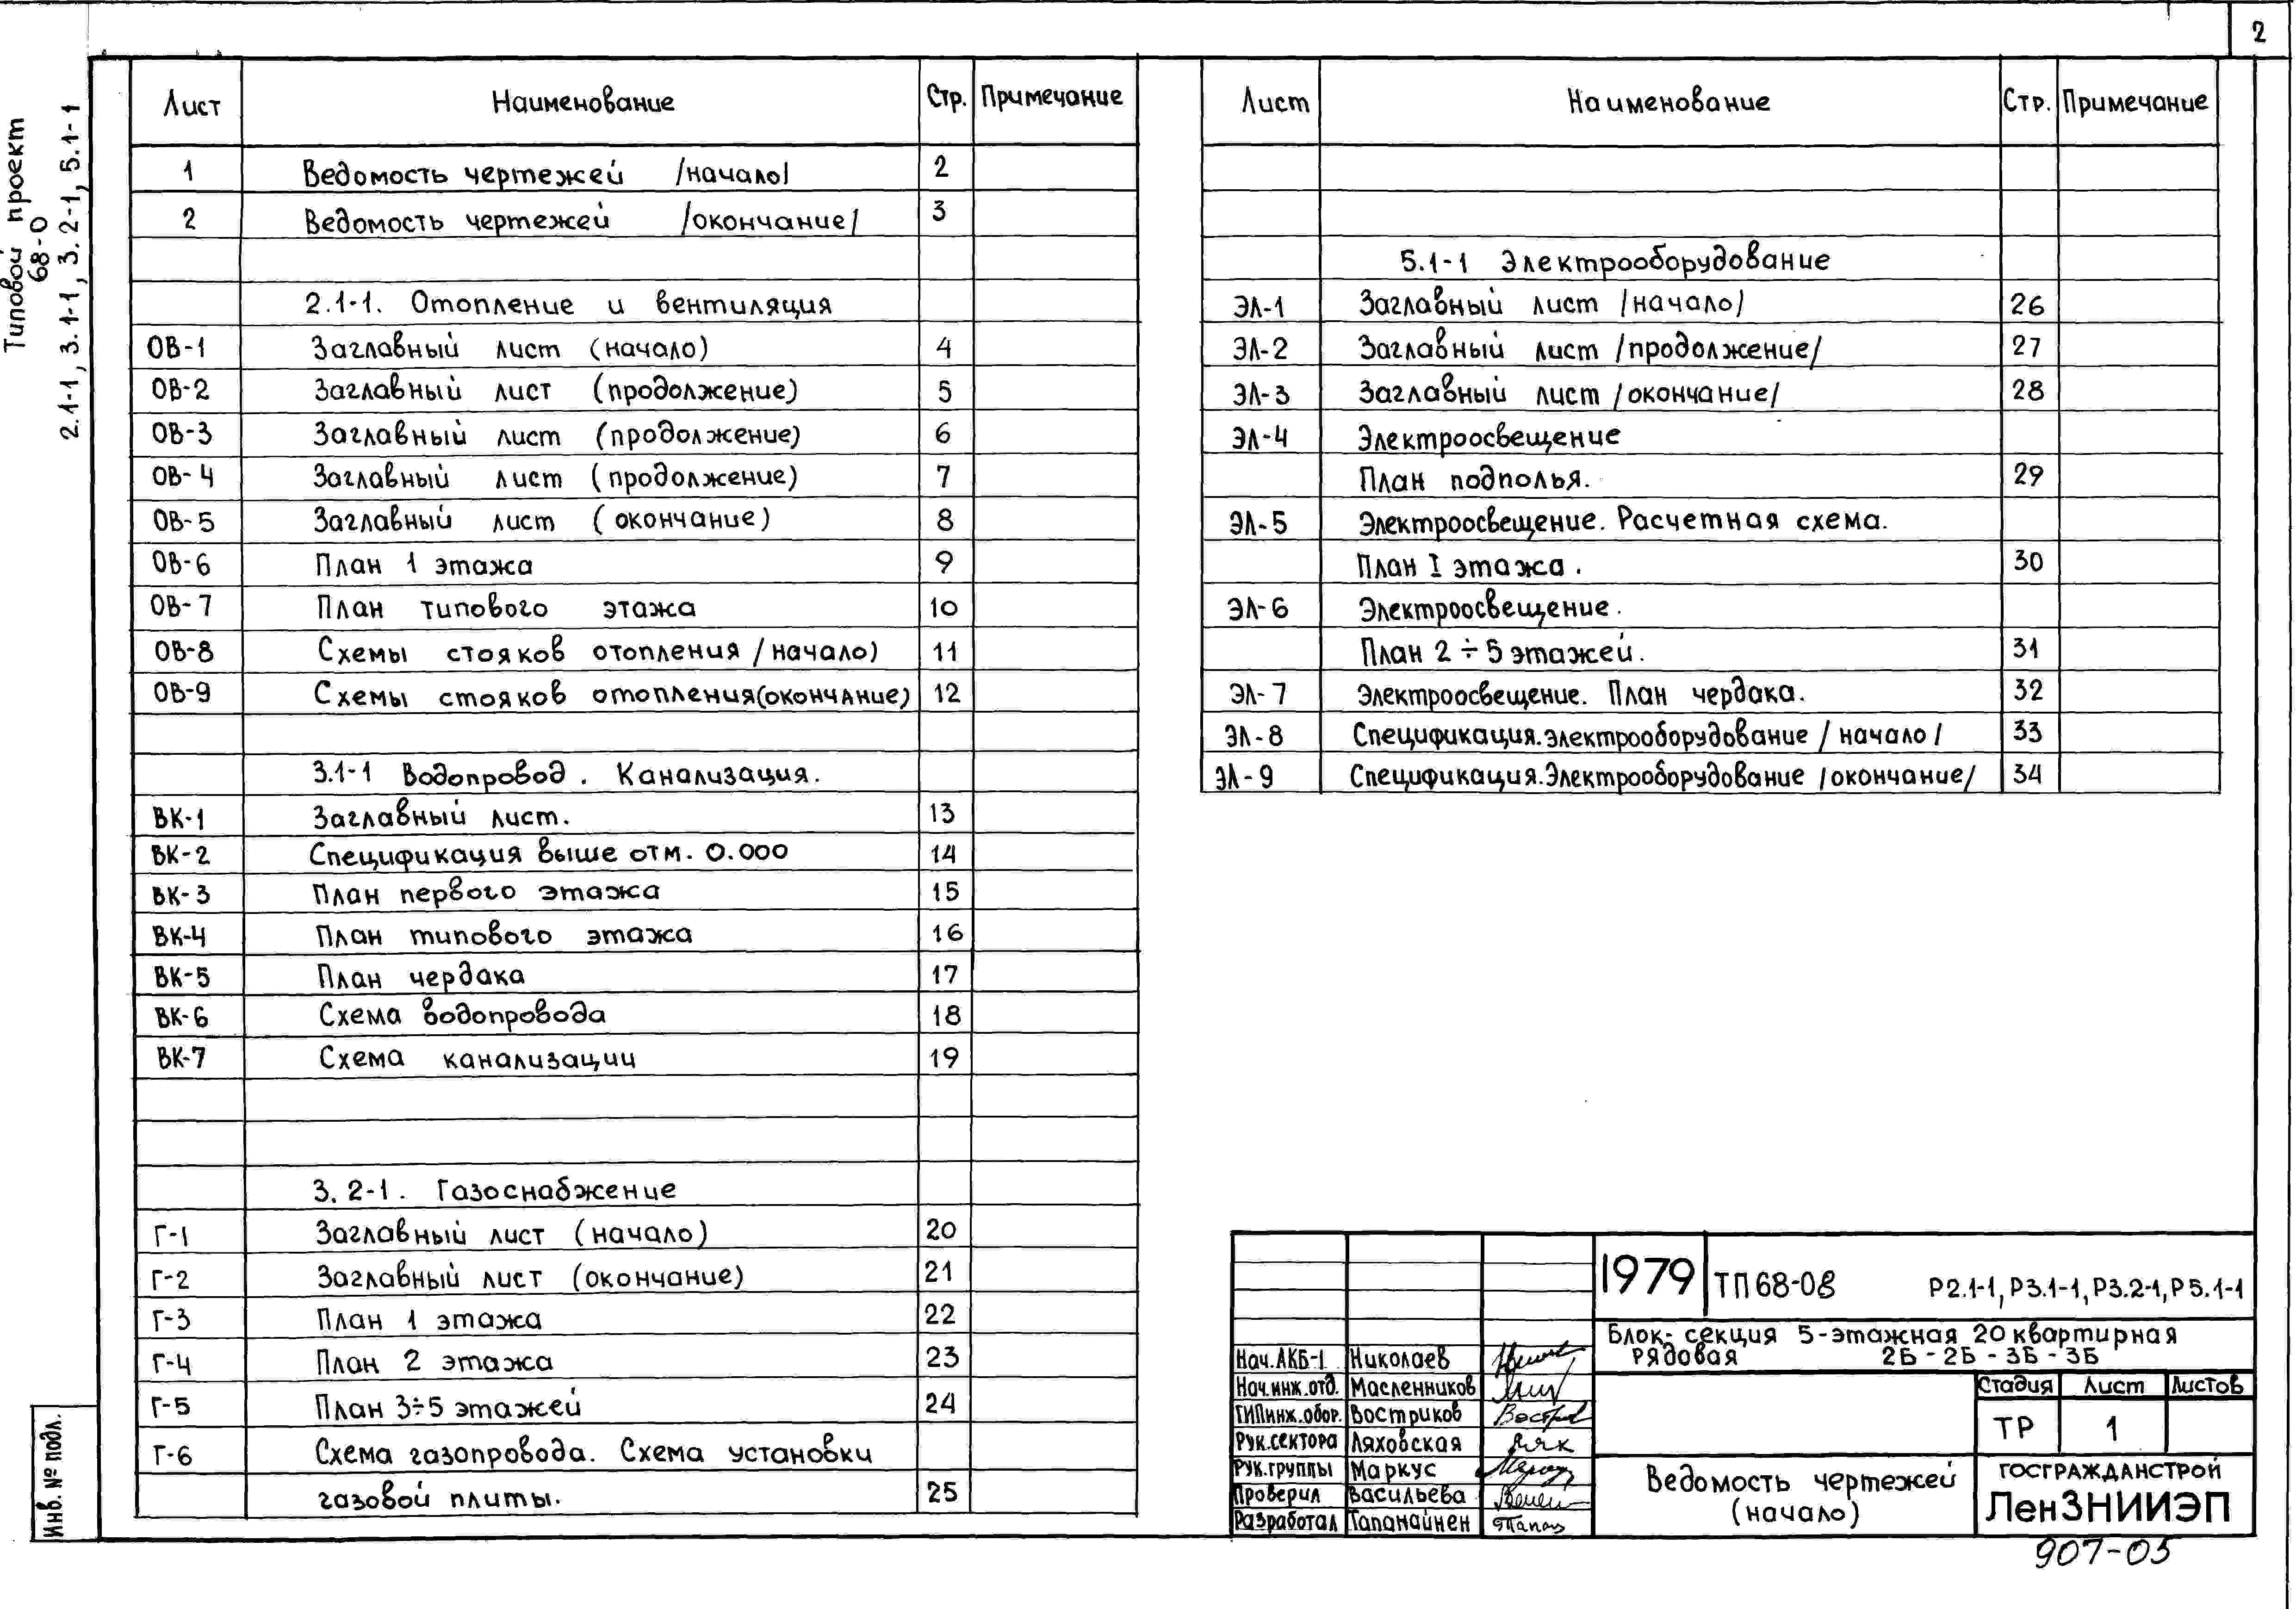 2
Типовой проект
68-0
2.1-1, 3.1-1, 3.2-1, 5.1-1
Лист Наименование Стр. Примечание
1 Ведомость чертежей /начало/ 2
2 Ведомость чертежей /окончание/ 3
2.1-1. Отопление и вентиляция
ОВ-1 Заглавный лист (начало) 4
ОВ-2 Заглавный лист (продолжение) 5
ОВ-3 Заглавный лист (продолжение) 6
ОВ-4 Заглавный лист (продолжение) 7
ОВ-5 Заглавный лист (окончание) 8
ОВ-6 План 1 этажа 9
ОВ-7 План типового этажа 10
ОВ-8 Схемы стояков отопления /начало) 11
ОВ-9 Схемы стояков отопления(окончание) 12
3.1-1 Водопровод. Канализация.
ВК-1 Заглавный лист. 13
ВК-2 Спецификация выше отм. 0.000 14
ВК-3 План первого этажа 15
ВК-4 План типового этажа 16
ВК-5 План чердака 17
ВК-6 Схема водопровода 18
ВК-7 Схема канализации 19
3.2-1. Газоснабжение
Г-1 Заглавный лист (начало) 20
Г-2 Заглавный лист (окончание) 21
Г-3 План 1 этажа 22
Г-4 План 2 этажа 23
Г-5 План 3÷5 этажей 24
Г-6 Схема газопровода. Схема установки
газовой плиты. 25
Лист Наименование Стр. Примечание
5.1-1 Электрооборудование
ЭЛ-1 Заглавный лист /начало/ 26
ЭЛ-2 Заглавный лист /продолжение/ 27
ЭЛ-3 Заглавный лист /окончание/ 28
ЭЛ-4 Электроосвещение
План подполья. 29
ЭЛ-5 Электроосвещение. Расчетная схема.
План I этажа. 30
ЭЛ-6 Электроосвещение.
План 2÷5 этажей. 31
ЭЛ-7 Электроосвещение. План чердака. 32
ЭЛ-8 Спецификация.электрооборудование /начало/ 33
ЭЛ-9 Спецификация.Электрооборудование /окончание/ 34
1979 ТП 68-08 Р2.1-1, Р3.1-1, Р3.2-1, Р5.1-1
Блок-секция 5-этажная 20 квартирная
рядовая 2Б-2Б-3Б-3Б
Нач.АКБ-1 Николаев
Нач.инж.отд. Масленников
ГИПинж.обор. Востриков
Рук.сектора Ляховская
Рук.группы Маркус
Проверил Васильева
Разработал Тапанайнен
Стадия Лист Листов
ТР 1
Ведомость чертежей
(начало)
ГОСГРАЖДАНСТРОЙ
ЛенЗНИИЭП
907-03
Инв. № подл.